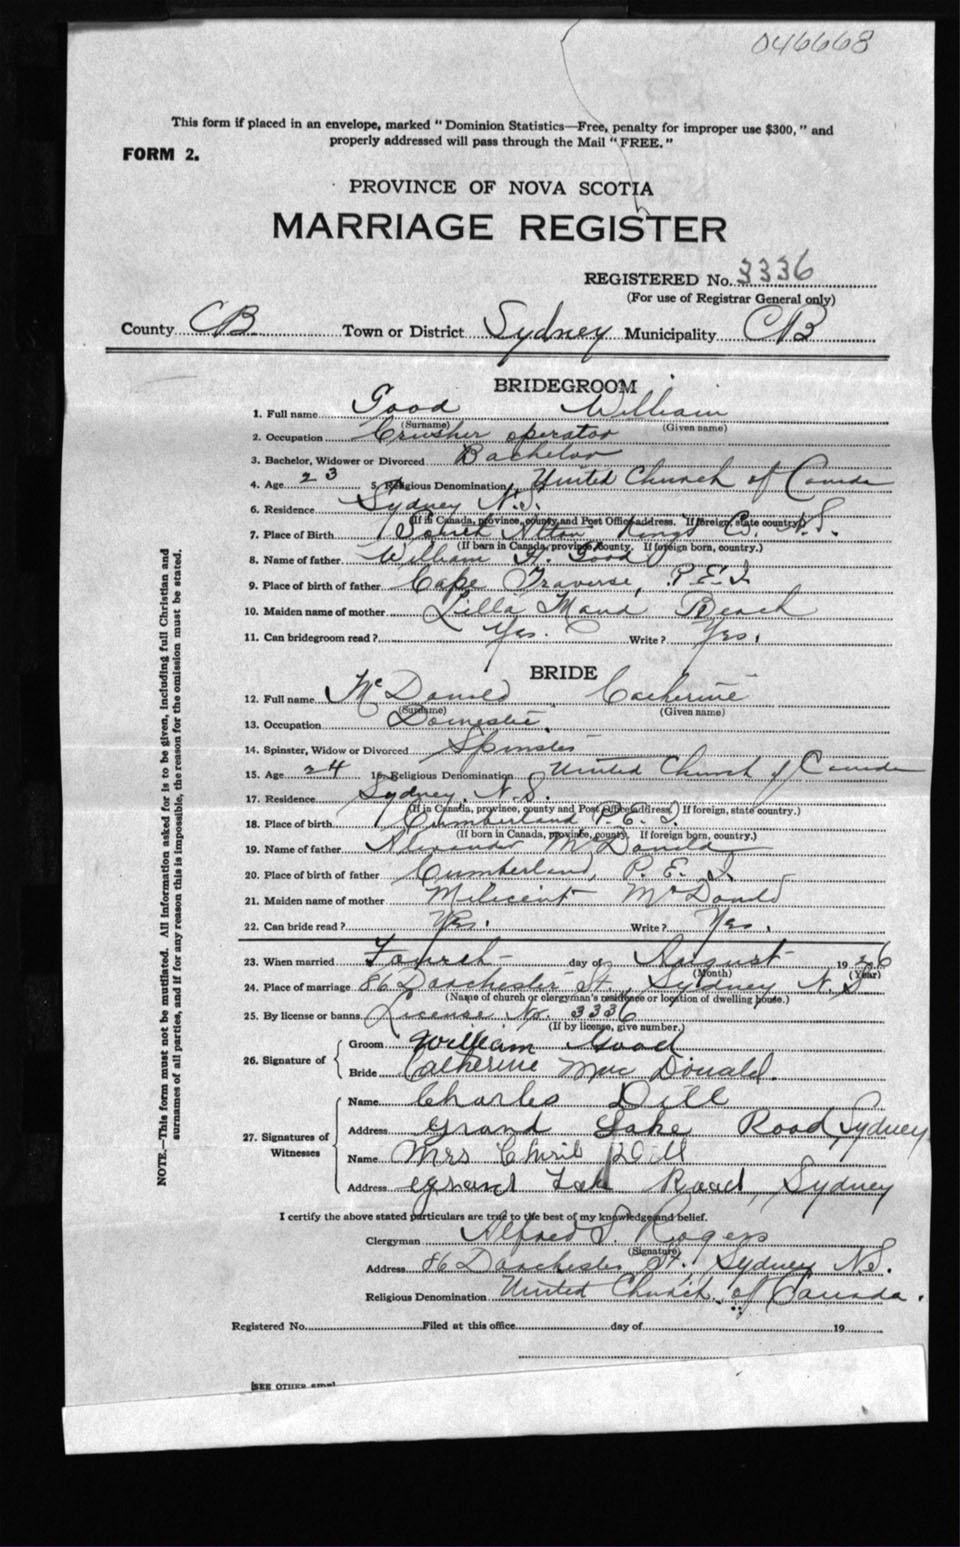 046668
This form if placed in an envelope, marked "Dominion Statistics—Free, penalty for improper use $300," and
properly addressed will pass through the Mail "FREE."
FORM 2.
PROVINCE OF NOVA SCOTIA
MARRIAGE REGISTER
REGISTERED No. 3336
(For use of Registrar General only)
County CB Town or District Sydney Municipality CB
BRIDEGROOM
1. Full name Good William
(Surname) (Given name)
2. Occupation Crusher operator
3. Bachelor, Widower or Divorced Bachelor
4. Age 23 5. Religious Denomination United Church of Canada
6. Residence Sydney N.S.
(If in Canada, province, county and Post Office address. If foreign, state country.)
7. Place of Birth Kings Co. N.S.
(If born in Canada, province, county. If foreign born, country.)
8. Name of father William H. Good
9. Place of birth of father Cape Traverse, P.E.I
10. Maiden name of mother Lilla Maud Beach
11. Can bridegroom read? Yes. Write? Yes.
BRIDE
12. Full name McDonald Catherine
(Surname) (Given name)
13. Occupation Domestic
14. Spinster, Widow or Divorced Spinster
15. Age 24 16. Religious Denomination United Church of Canada
17. Residence Sydney, N.S.
(If in Canada, province, county and Post Office address.) If foreign, state country.)
18. Place of birth Cumberland P.E.I.
(If born in Canada, province, county. If foreign born, country.)
19. Name of father Alexander McDonald
20. Place of birth of father Cumberland, P.E.I
21. Maiden name of mother Milicent McDonald
22. Can bride read? Yes. Write? Yes.
23. When married Fourth day of August 1926
(Month) (Year)
24. Place of marriage 86 Dorchester St., Sydney N.S
(Name of church or clergyman's residence or location of dwelling house.)
25. By license or banns License No. 3336
(If by license, give number.)
26. Signature of
Groom William Good
Bride Catherine Mac Donald.
27. Signatures of Witnesses
Name Charles Dill
Address Grand Lake Road, Sydney
Name Mrs Dill
Address Grand Lake Road, Sydney
I certify the above stated particulars are true to the best of my knowledge and belief.
Clergyman Alfred J. Rogers
(Signature)
Address 86 Dorchester St., Sydney N.S.
Religious Denomination United Church of Canada.
Registered No. Filed at this office day of 19
[SEE OTHER
NOTE.—This form must not be mutilated. All information asked for is to be given, including full Christian and
surnames of all parties, and if for any reason this is impossible, the reason for the omission must be stated.